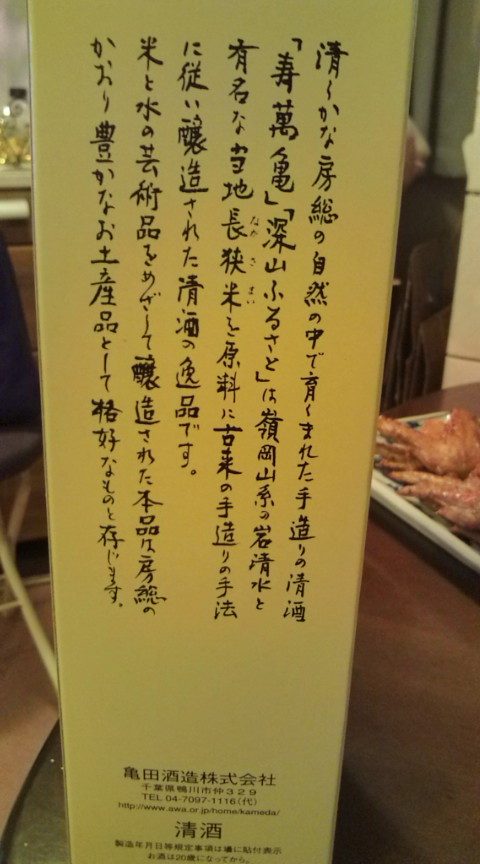 清らかな房総の自然の中で育くまれた手造りの清酒
「寿萬亀」「深山ふるさと」は嶺岡山系の岩清水と
有名な当地長狭米を原料に古来の手造りの手法
ながさまい
に従い醸造された清酒の逸品です。
米と水の芸術品をめざして醸造された本品は房総の
かおり豊かなお土産品として格好なものと存じます。
亀田酒造株式会社
千葉県鴨川市仲329
TEL 04-7097-1116(代)
http://www.awa.or.jp/home/kameda/
清酒
製造年月日等規定事項は壜に貼付表示
お酒は20歳になってから。